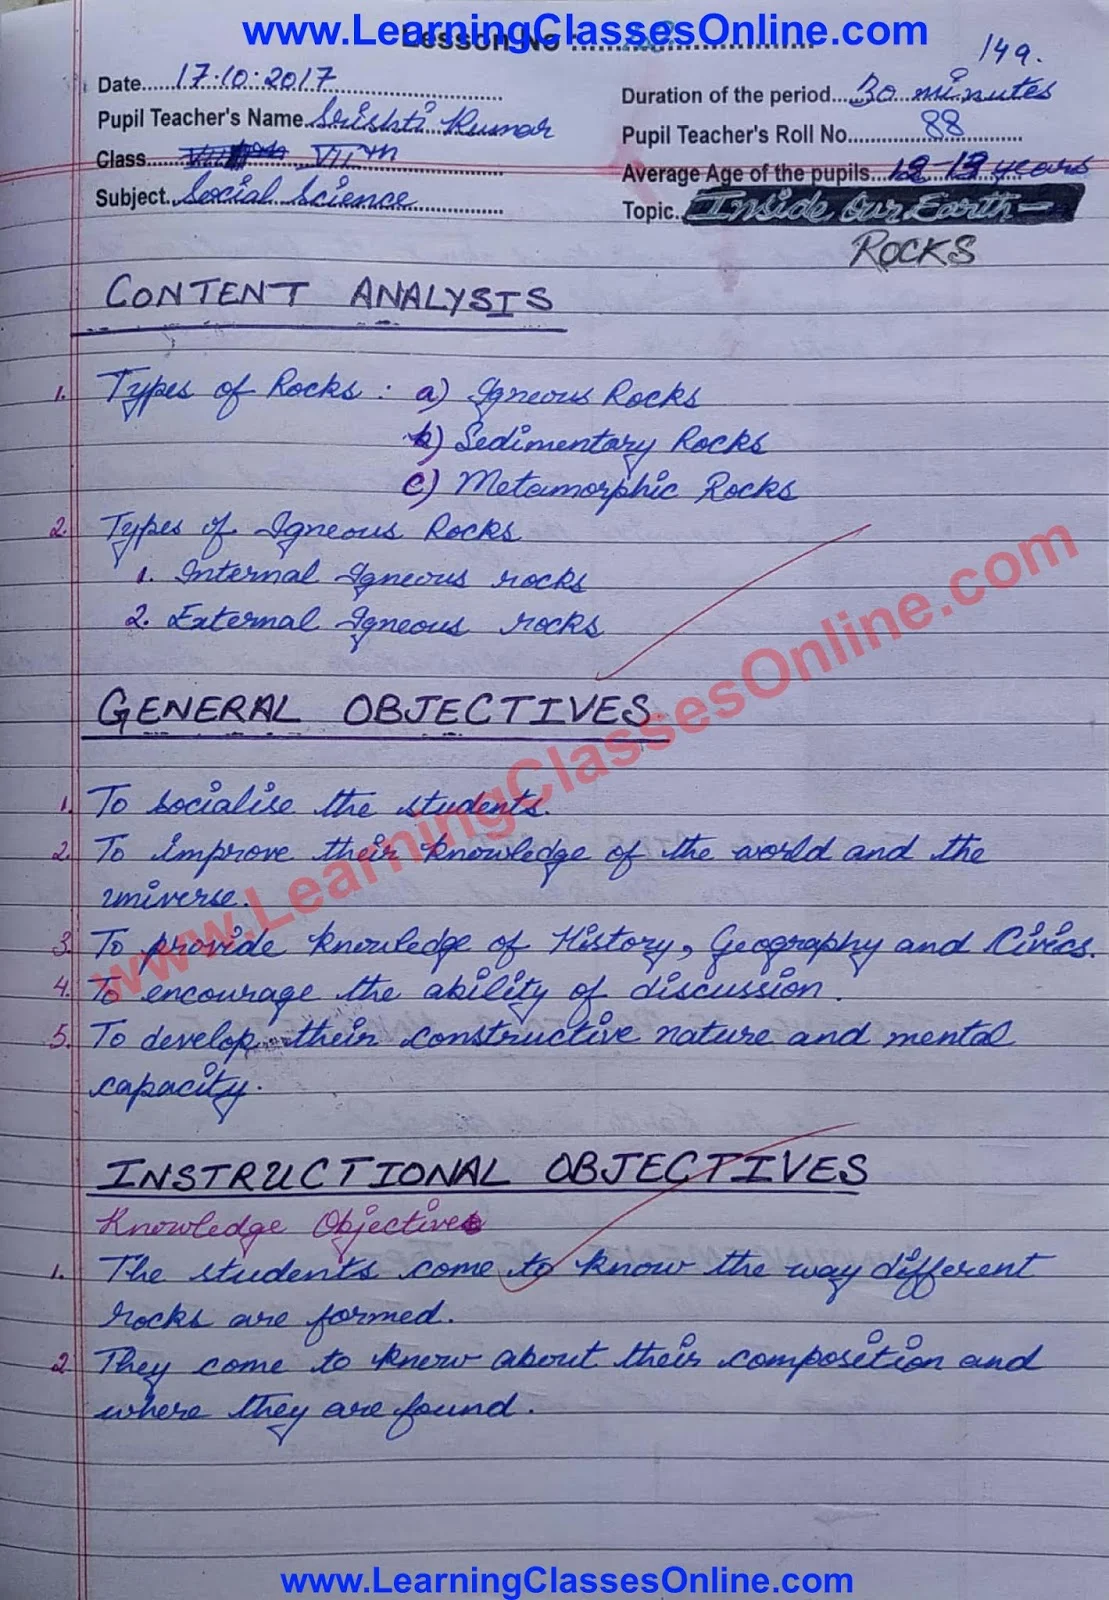 www.LearningClassesOnline.com
Lesson No :
149.
Date.....17.10.2017
Duration of the period...30 minutes
Pupil Teacher's Name..Srishti Kumar
Pupil Teacher's Roll No.....88
Class.....VIIth
Average Age of the pupils...12-13 years
Subject..Social Science
Topic..Inside Our Earth-
ROCKS
CONTENT ANALYSIS
1. Types of Rocks : a) Igneous Rocks
b) Sedimentary Rocks
c) Metamorphic Rocks
2. Types of Igneous Rocks
1. Internal Igneous rocks
2. External Igneous rocks
GENERAL OBJECTIVES
1. To socialise the students.
2. To improve their knowledge of the world and the
universe.
3. To provide knowledge of History, Geography and Civics.
4. To encourage the ability of discussion.
5. To develop their constructive nature and mental
capacity.
www.LearningClassesOnline.com
INSTRUCTIONAL OBJECTIVES
Knowledge Objectives
1. The students come to know the way different
rocks are formed.
2. They come to know about their composition and
where they are found.
www.LearningClassesOnline.com